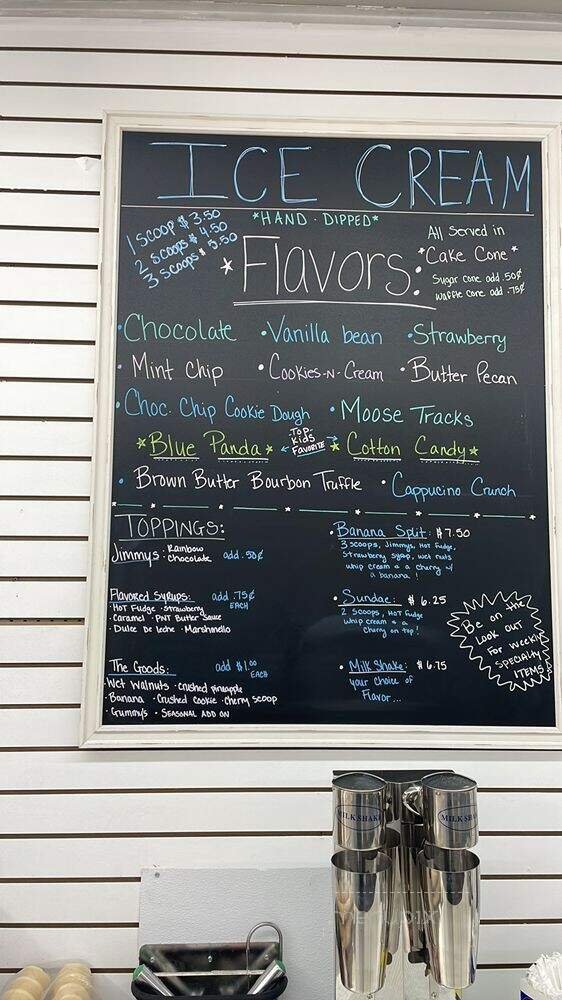 ICE CREAM
*HAND · DIPPED*
1 SCOOP $ 3.50
2 SCOOPS $ 4.50
3 SCOOPS $ 5.50
* Flavors:
All served in
*Cake Cone*
Sugar cone add .50¢
Waffle cone add .75¢
• Chocolate • Vanilla bean • Strawberry
• Mint Chip • Cookies-N-Cream • Butter Pecan
• Choc. Chip Cookie Dough • Moose Tracks
*Blue Panda* ← TOP- KIDS FAVORITE → *Cotton Candy*
• Brown Butter Bourbon Truffle • Cappucino Crunch
TOPPINGS:
Jimmys · Rainbow · Chocolate add .50¢
Flavored Syrups: add .75¢ EACH
· Hot Fudge · Strawberry
· Caramel · PNT Butter Sauce
· Dulce De leche · Marshmello
The Goods: add $1.00 EACH
· Wet Walnuts · Crushed pineapple
· Banana · Crushed Cookie · Cherry scoop
· Gummys · SEASONAL ADD ON
• Banana Split: $7.50
3 scoops, Jimmys, Hot Fudge,
Strawberry Syrup, wet nuts
whip cream & a cherry w/
a banana!
• Sundae: $ 6.25
2 scoops, HOT Fudge
whip cream & a
Cherry on top!
• Milk Shake: $ 6.75
your choice of
Flavor...
Be on the
LOOK OUT
For weekly
SPECIALTY
ITEMS!
MILK SHAKE
MILK SHAKE